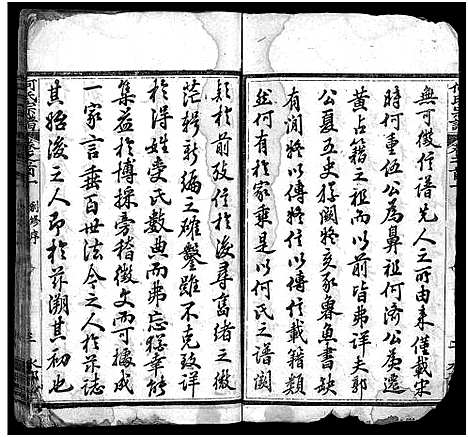 無可徵信譜先人之所由来僅載宋
時何重伍公為鼻祖何濟公黄逸
黄占籍之祖而以前皆弗詳夫郭
公夏五史存闕於亥豕魯魚書缺
有间終以傳終以傳信載籍類
並何有於家乘是以何氏之譜闕
疑於前孜信於後尋舊緒之微
茫輯新編之雄鑿雖不克致詳
於得姓受氏數典而弗忘猶幸能
集益於博採旁稽徵文而可據成
一家言垂百世法今之人於茲誌
其始後之人即於茲溯其初也
何氏宗譜
卷之首一
創修序
三